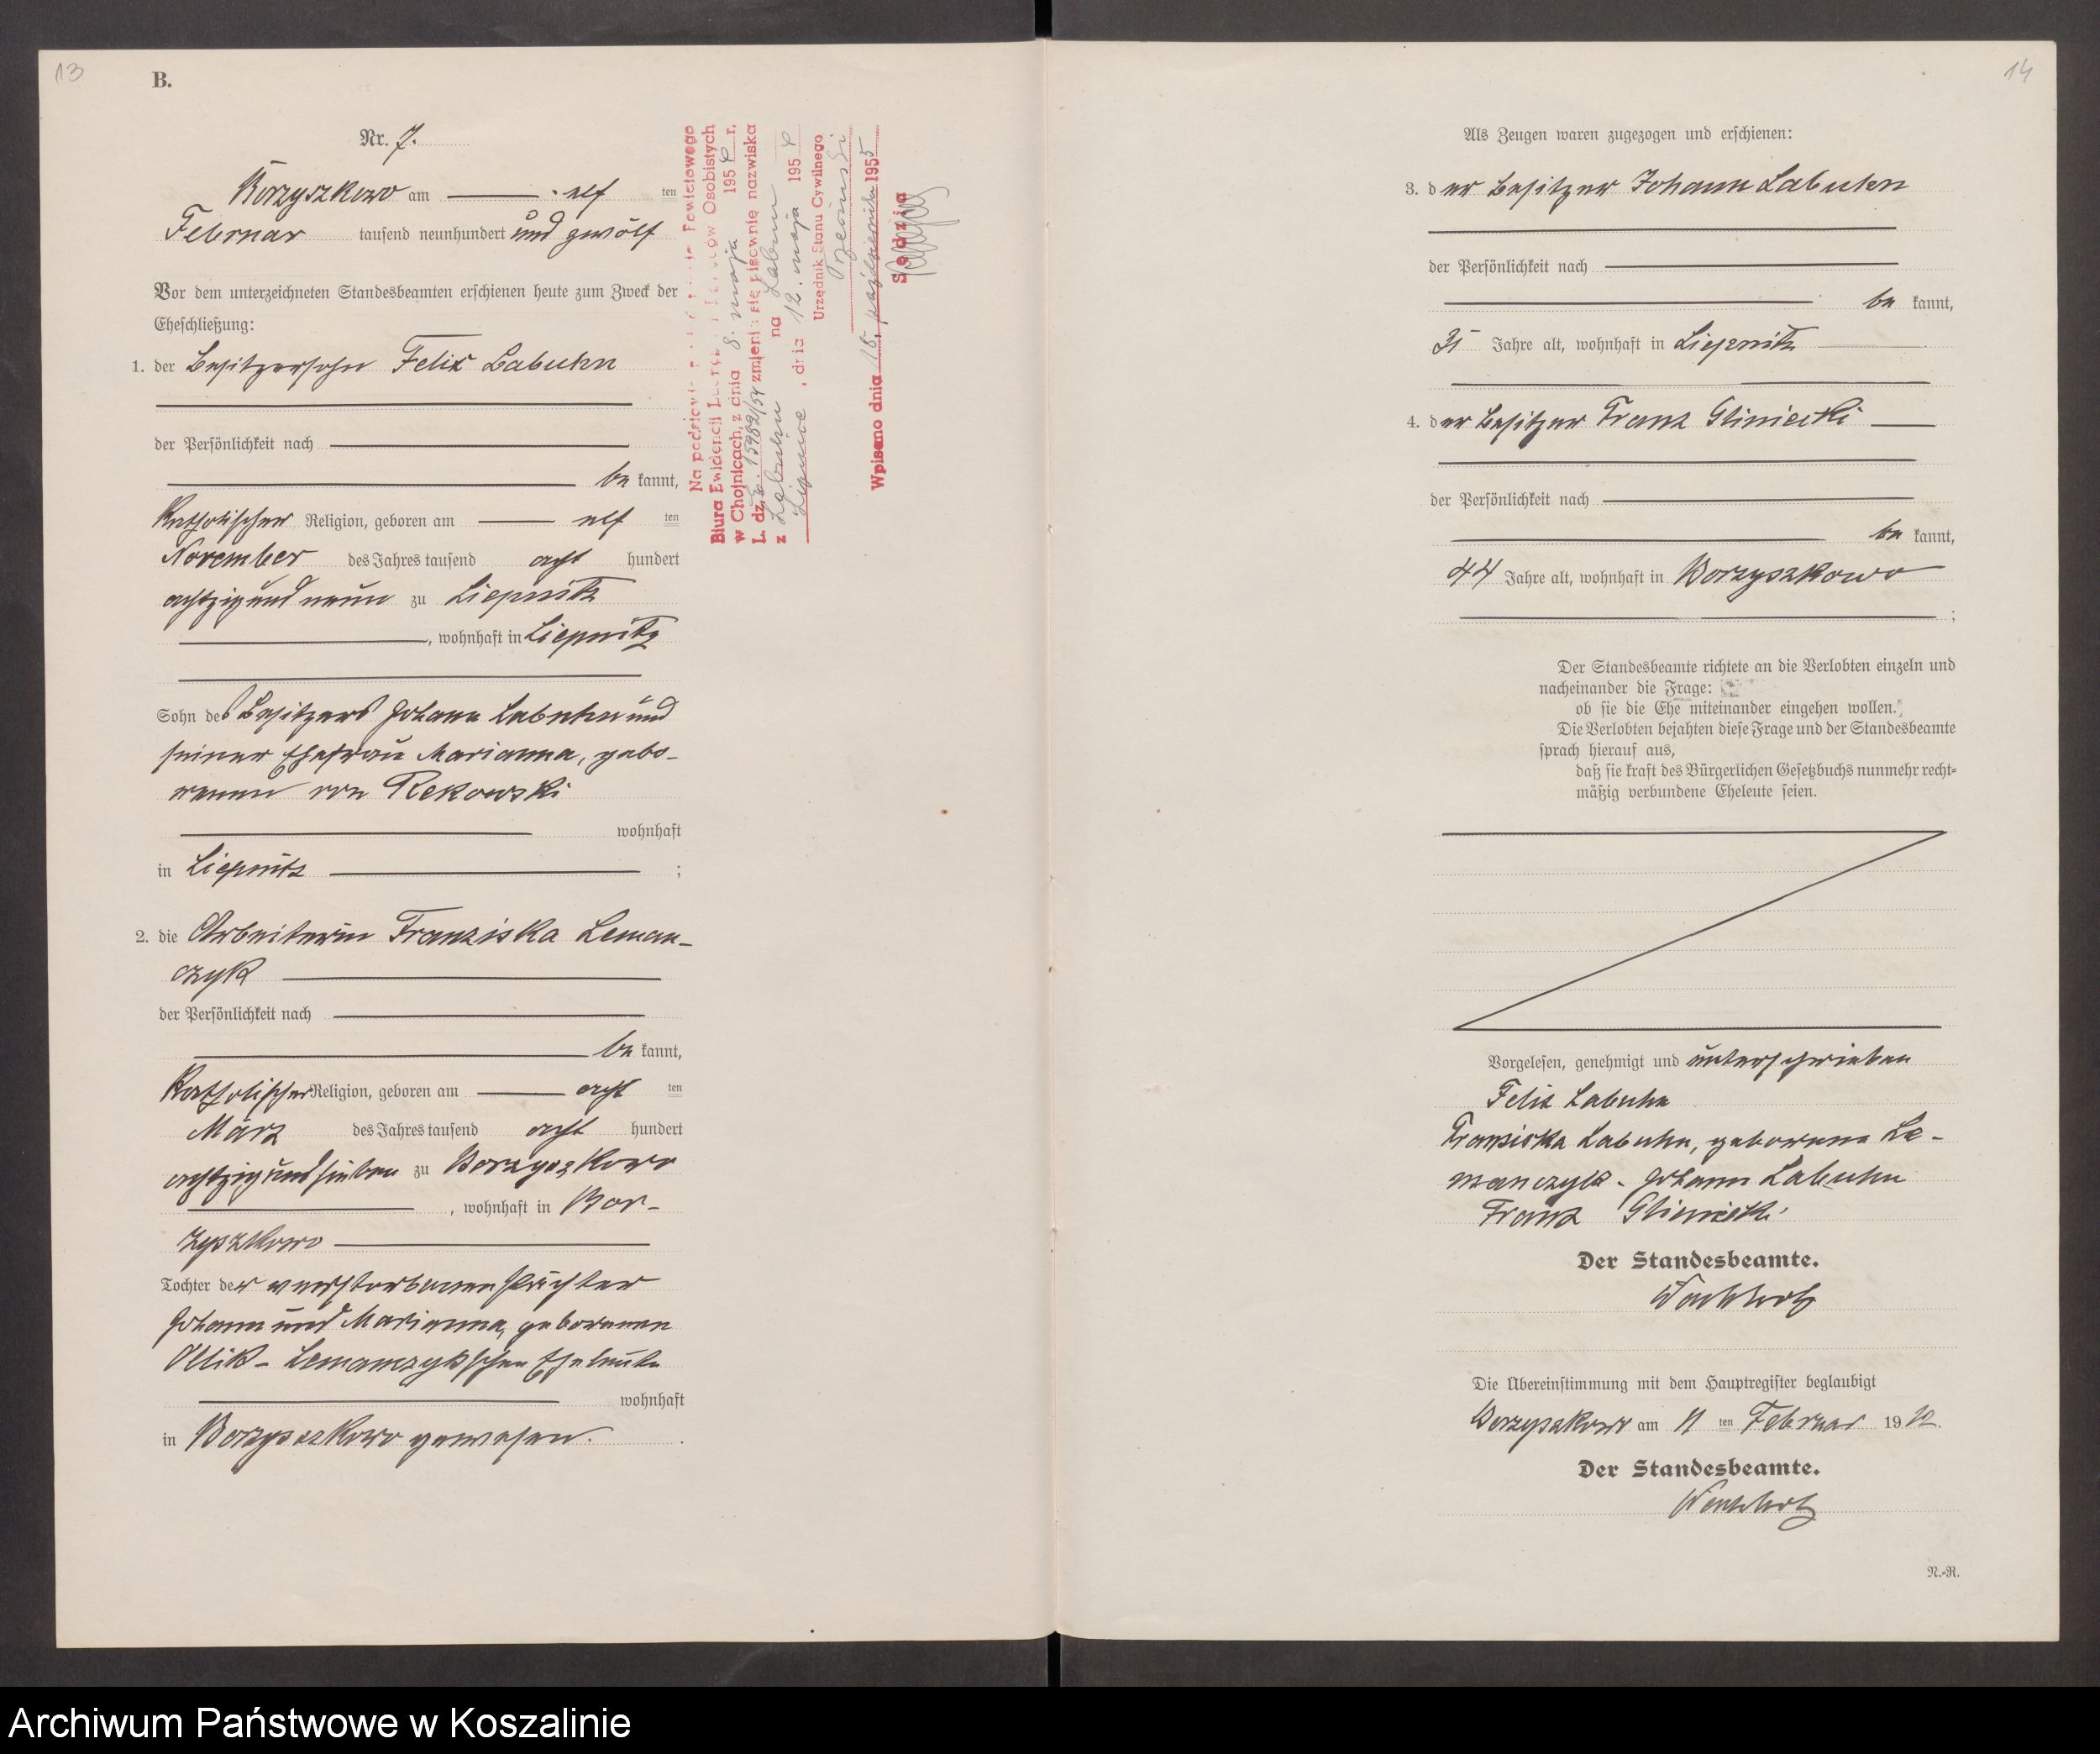 13
B.
Nr. 7.
Borzyszkowo am elf ten
Februar tausend neunhundert und zwölf
Vor dem unterzeichneten Standesbeamten erschienen heute zum Zweck der
Eheschließung:
1. der Besitzersohn Felix Labuhn
der Persönlichkeit nach
be kannt,
katholischer Religion, geboren am elf ten
November des Jahres tausend acht hundert
achtzig und neun zu Liepnitz
, wohnhaft in Liepnitz
Sohn des Besitzers Johann Labuhn und
seiner Ehefrau Marianna, gebo-
renen von Rekowski
wohnhaft
in Liepnitz ;
2. die Arbeiterin Franziska Leman-
czyk
der Persönlichkeit nach
be kannt,
katholischer Religion, geboren am acht ten
März des Jahres tausend acht hundert
achtzig und sieben zu Borzyszkowo
, wohnhaft in Bor-
zyszkowo
Tochter der verstorbenen Pächter
Johann und Marianna, geborenen
Ollik - Lemanczykschen Eheleute
wohnhaft
in Borzyszkowo gewesen.
Na podstawie Powiatowego
Biura Ewidencji Ludności i Dowodów Osobistych
w Chojnicach, z dnia 8. maja 1954 r.
L. dz. 15982/54 zmienia się pisownię nazwiska
z Labuhn na Labun
Lipnice, dnia 12. maja 1954
Urzędnik Stanu Cywilnego
Wpisano dnia 18. października 1955
Sędzia
14
Als Zeugen waren zugezogen und erschienen:
3. der Besitzer Johann Labuhn
der Persönlichkeit nach
be kannt,
Jahre alt, wohnhaft in Liepnitz
4. der Besitzer Franz Gliniecki
der Persönlichkeit nach
be kannt,
44 Jahre alt, wohnhaft in Borzyszkowo
;
Der Standesbeamte richtete an die Verlobten einzeln und
nacheinander die Frage:
ob sie die Ehe miteinander eingehen wollen.
Die Verlobten bejahten diese Frage und der Standesbeamte
sprach hierauf aus,
daß sie kraft des Bürgerlichen Gesetzbuchs nunmehr recht=
mäßig verbundene Eheleute seien.
Vorgelesen, genehmigt und unterschrieben
Felix Labuhn
Franziska Labuhn, geborene Le-
manczyk - Johann Labuhn
Franz Gliniecki
Der Standesbeamte.
Die Übereinstimmung mit dem Hauptregister beglaubigt
Borzyszkowo am 11 ten Februar 1912.
Der Standesbeamte.
N.=R.
Archiwum Państwowe w Koszalinie